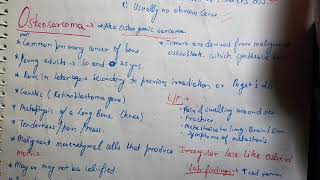 1. Usually no obvious cause.
Osteosarcoma → Aka Osteogenic sarcoma
* Common primary cancer of bone
* Tumors are derived from malignant osteoblast, which synthesize
* Young adults → 10 and 25 yrs.
* Rare in later age & secondary to previous irradiation or Paget's d
* Genetic (Retinoblastoma gene)
* Metaphysis of a long Bone (knee)
* Tenderness / pain / Mass.
C/P
* Pain & swelling around
* Fracture
* Metastasis to lung, Brain,
* Symptoms of metastasis
* Malignant mesenchymal cells that produce Irregular lace like Osteoid matrix
* May or may not be calcified
Lab findings